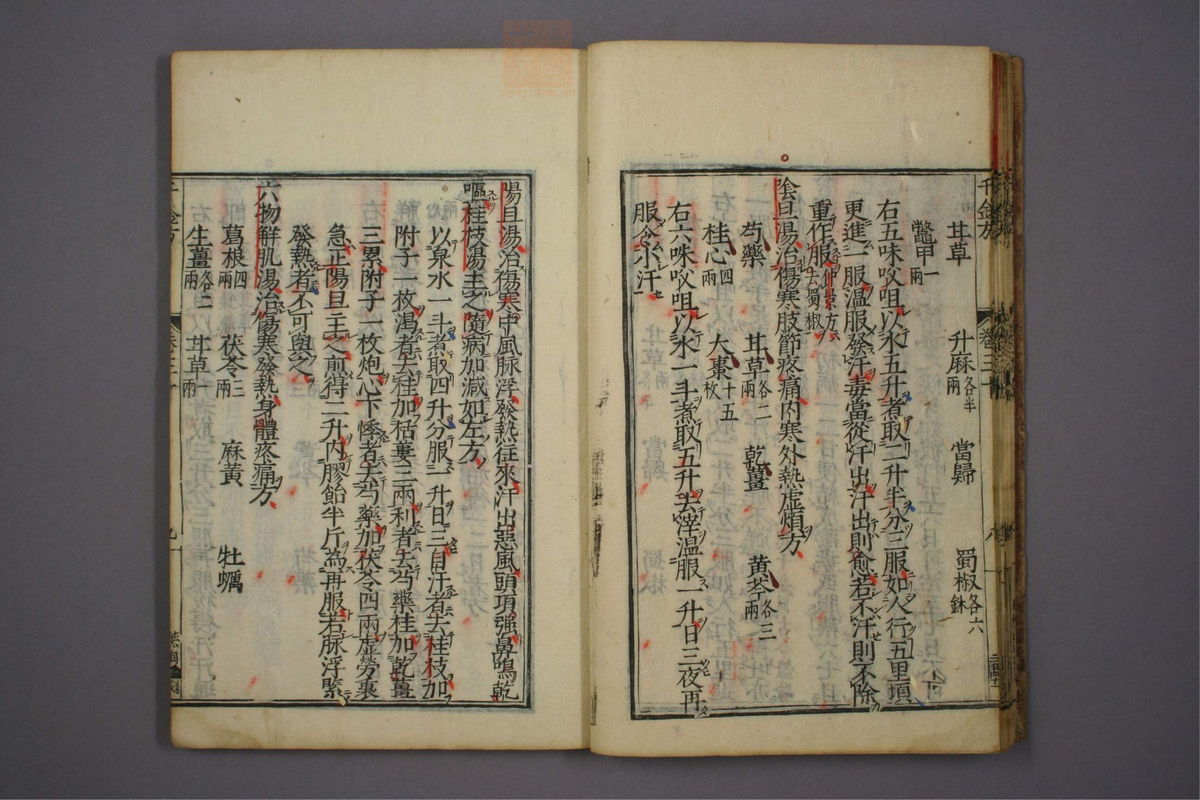 千金方 卷三十
甘草 升麻各半兩 當歸 蜀椒各六銖
鼈甲一兩
右五味㕮咀以水五升煮取二升半分三服如人行五里頃
更進一服溫服發汗毒當從汗出汗出則愈若不汗則不除
重作服仲景方去蜀椒
陰旦湯治傷寒肢節疼痛內寒外熱虛煩方
芍藥 甘草各二兩 乾薑 黃芩各三兩
桂心四兩 大棗十五枚
右六味㕮咀以水一斗煮取五升去滓溫服一升日三夜再
服令小汗
陽旦湯治傷寒中風脉浮發熱往來汗出惡風頭項强鼻鳴乾
嘔桂枝湯主之隨病加減如左方
以泉水一斗煮取四升分服一升日三自汗者去桂枝加
附子一枚渴者去桂加栝蔞三兩利者去芍藥桂加乾薑
三累附子一枚炮心下悸者去芍藥加茯苓四兩虛勞裏
急正陽旦主之煎得二升內膠飴半斤為再服若脉浮緊
發熱者不可與之
六物解肌湯治傷寒發熱身體疼痛方
葛根四兩 茯苓三兩 麻黃 牡蠣
生薑各二兩 甘草一兩
千金方 卷三十